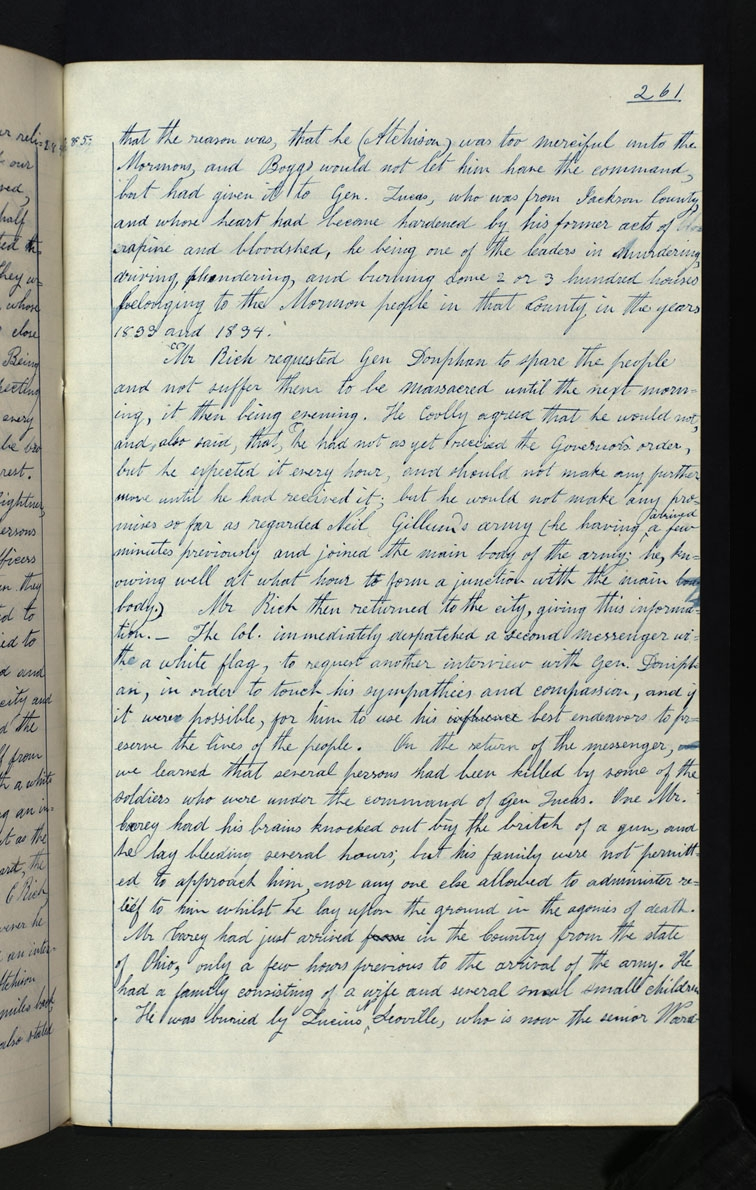 261
that the reason was, that he (Atchison) was too merciful unto the
Mormons, and Boggs would not let him have the command,
but had given it to Gen. Lucas, who was from Jackson County,
and whose heart had become hardened by his former acts of
rapine and bloodshed, he being one of the leaders in murdering,
driving, plundering, and burning some 2 or 3 hundred houses
belonging to the Mormon people in that County in the years
1833 and 1834.
"Mr Rich requested Gen Doniphan to spare the people
and not suffer them to be massacred until the next morn=
ing, it then being evening. He coolly agreed that he would not,
and, also said, that, he had not as yet received the Governor's order,
but he expected it every hour, and should not make any further
move until he had received it; but he would not make any pro=
mises so far as regarded Neil Gillum's army (he having arrived a few
minutes previously and joined the main body of the army; he, kn=
owing well at what hour to form a junction with the main
body.) Mr Rich then returned to the city, giving this informa=
tion.— The Col. immediately despatched a second messenger wi=
th a white flag, to request another interview with Gen. Doniph=
an, in order to touch his sympathies and compassion, and if
it were possible, for him to use his influence best endeavors to pr=
eserve the lives of the people. On the return of the messenger,
we learned that several persons had been killed by some of the
soldiers who were under the command of Gen Lucas. One Mr.
Carey had his brains knocked out by the britch of a gun, and
he lay bleeding several hours; but his family were not permitt=
ed to approach him, nor any one else allowed to administer re=
lief to him whilst he lay upon the ground in the agonies of death.
Mr Carey had just arrived from in the Country from the state
of Ohio, only a few hours previous to the arrival of the army. He
had a family consisting of a wife and several small children
. He was buried by Lucius Scoville, who is now the senior Ward
ur reli=
our
half
they w=
whose
close
Being
every
rest.
ersons
fficers
they
d to
ied to
d and
city and
d the
from
h a white
g an in=
t as the
the
C Rich,
an inter=
tchison
miles back,
also stated